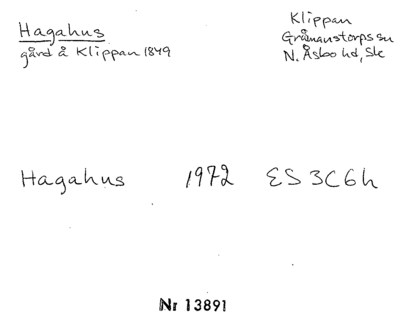 Hagahus
gård å Klippan 1849
Klippan
Gråmanstorps sn
N. Åsbo hd, Sk
Hagahus 1972 ES 3C6h
Nr 13891